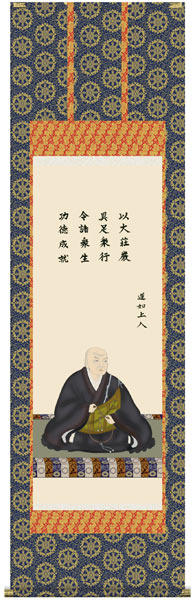 蓮如上人
以大莊嚴
具足衆行
令諸衆生
功德成就